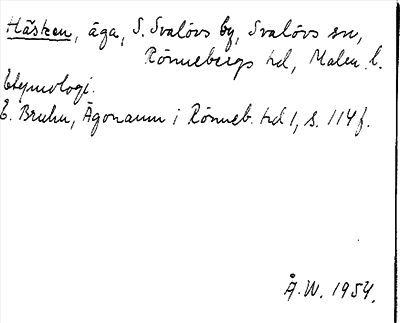 Häsken, äga, S. Svalövs by, Svalövs sn,
Rönnebergs hd, Malm. l.
Etymologi.
E. Bruhn, Ägonamn i Rönneb. hd 1, s. 114 f.
Å.W. 1954.